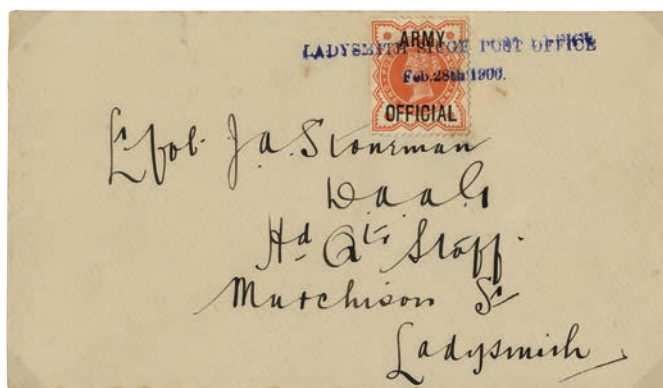 ARMY
LADYSMITH SIEGE POST OFFICE
Feb. 28th 1900.
OFFICIAL
Lt Col. J. A. Stoneman
D.a.a.G
Hd Qts Staff.
Murchison St
Ladysmith